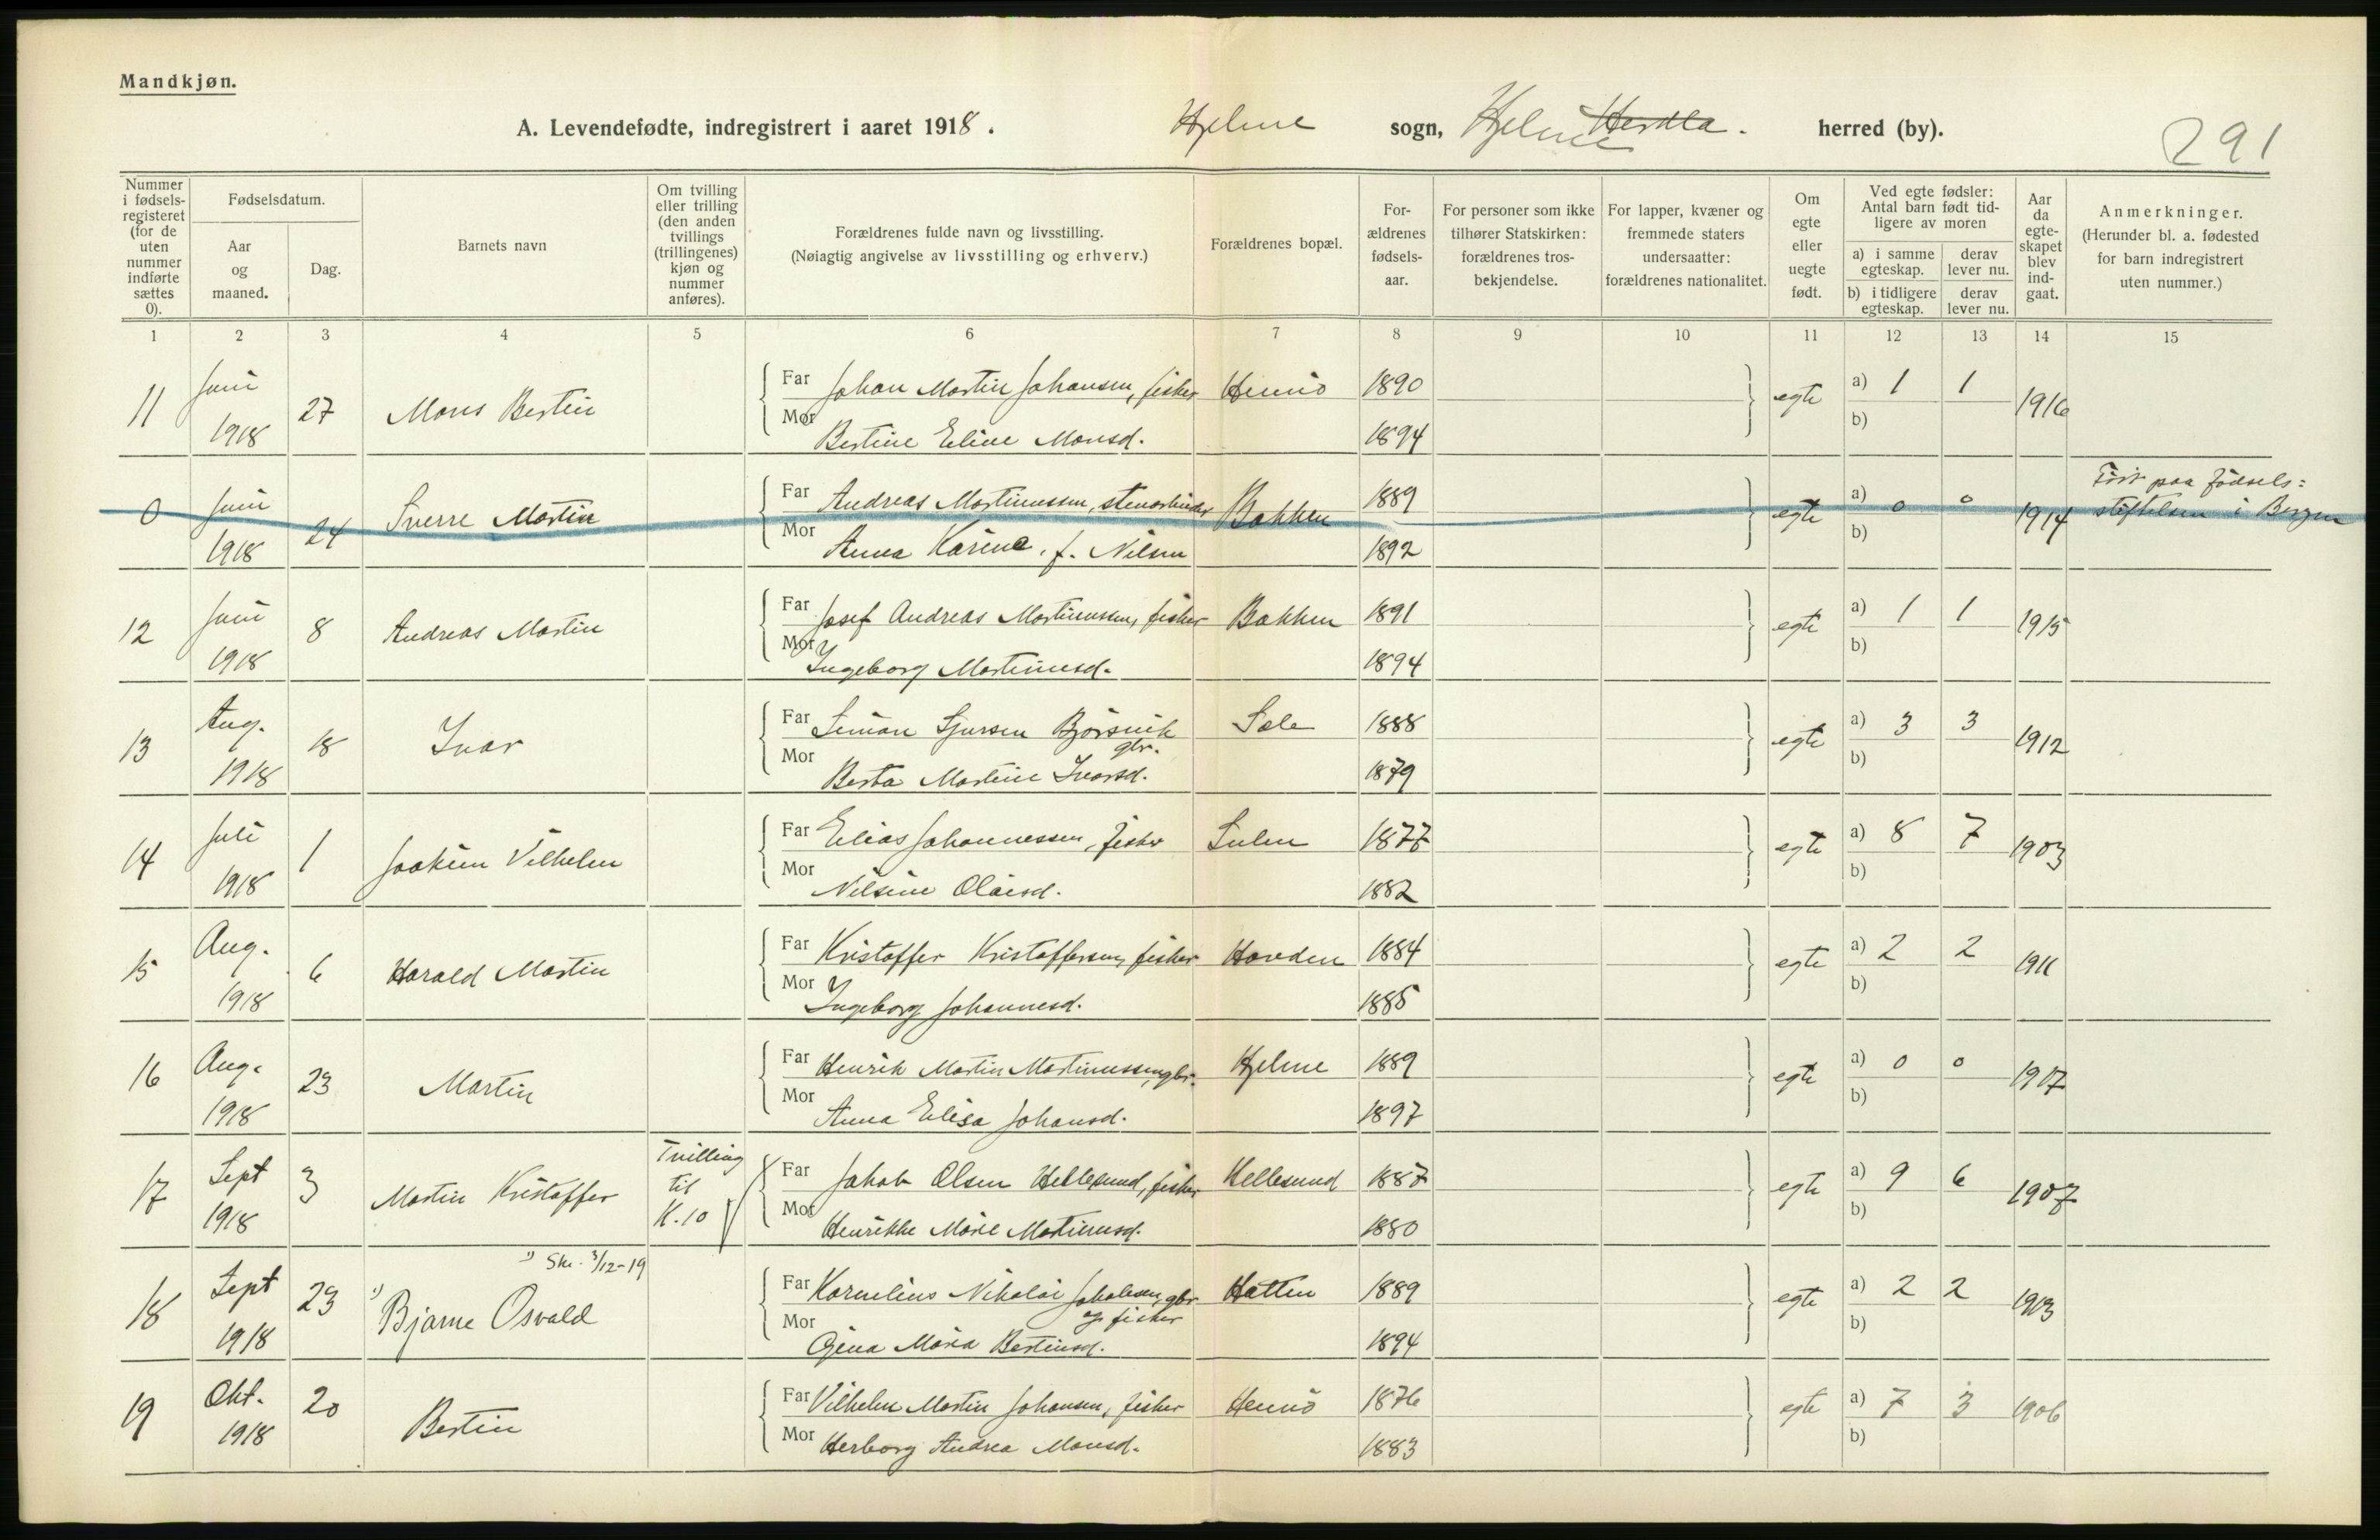 Mandkjøn.
A. Levendefødte, indregistrert i aaret 1918. Hjelme sogn, Hjelme Herdla. herred (by).
291
Nummer i fødsels-registeret (for de uten nummer indførte sættes 0).
Fødselsdatum.
Aar og maaned.
Dag.
Barnets navn
Om tvilling eller trilling (den anden tvillings (trillingenes) kjøn og nummer anføres).
Forældrenes fulde navn og livsstilling.
(Nøiagtig angivelse av livsstilling og erhverv.)
Forældrenes bopæl.
For-ældrenes fødsels-aar.
For personer som ikke tilhører Statskirken: forældrenes tros-bekjendelse.
For lapper, kvæner og fremmede staters undersaatter: forældrenes nationalitet.
Om egte eller uegte født.
Ved egte fødsler: Antal barn født tid-ligere av moren
a) i samme egteskap. derav lever nu.
b) i tidligere egteskap. derav lever nu.
Aar da egte-skapet blev ind-gaat.
Anmerkninger.
(Herunder bl. a. fødested for barn indregistrert uten nummer.)
1 2 3 4 5 6 7 8 9 10 11 12 13 14 15
11 Juni 1918 27 Mons Bertin
Far Johan Martin Johansen, fisker Hennö 1890 egte a) 1 1 1916
Mor Bertine Eline Monsd. 1894 b)
0 Juni 1918 24 Sverre Martin
Far Andreas Martinussen, stenarbeider Bakken 1889 egte a) 0 0 1914 Født paa fødsels:
stiftelsen i Bergen
Mor Anna Karine, f. Nilsen 1892 b)
12 Juni 1918 8 Andreas Martin
Far Josef Andreas Martinussen, fisker Bakken 1891 egte a) 1 1 1915
Mor Ingeborg Martinusd. 1894 b)
13 Aug. 1918 18 Ivar
Far Simon Sjursen Bjørsvik gbr. Sæle 1888 egte a) 3 3 1912
Mor Berta Martine Ivarsd. 1879 b)
14 Juli 1918 1 Joakim Vilhelm
Far Elias Johannessen, fisker Sulen 1877 egte a) 8 7 1903
Mor Nilsine Olaisd. 1882 b)
15 Aug. 1918 6 Harald Martin
Far Kristoffer Kristoffersen, fisker Hovden 1884 egte a) 2 2 1911
Mor Ingeborg Johannesd. 1885 b)
16 Aug. 1918 23 Martin
Far Henrik Martin Martinussen, gbr. Hjelme 1889 egte a) 0 0 1917
Mor Anna Elisa Johansd. 1897 b)
17 Sept 1918 3 Martin Kristoffer Tvilling til K. 10
Far Jakob Olsen Hellesund, fisker Hellesund 1887 egte a) 9 6 1907
Mor Henrikke Marie Martinusd. 1880 b)
1) Skr. 3/12-19
18 Sept 1918 23 1) Bjarne Osvald
Far Kornelius Nikolai Jakobsen, gbr og fisker Hatten 1889 egte a) 2 2 1913
Mor Gjena Maria Bertinsd. 1894 b)
19 Okt. 1918 20 Bertin
Far Vilhelm Martin Johansen, fisker Hennö 1876 egte a) 7 3 1906
Mor Herborg Andrea Monsd. 1883 b)